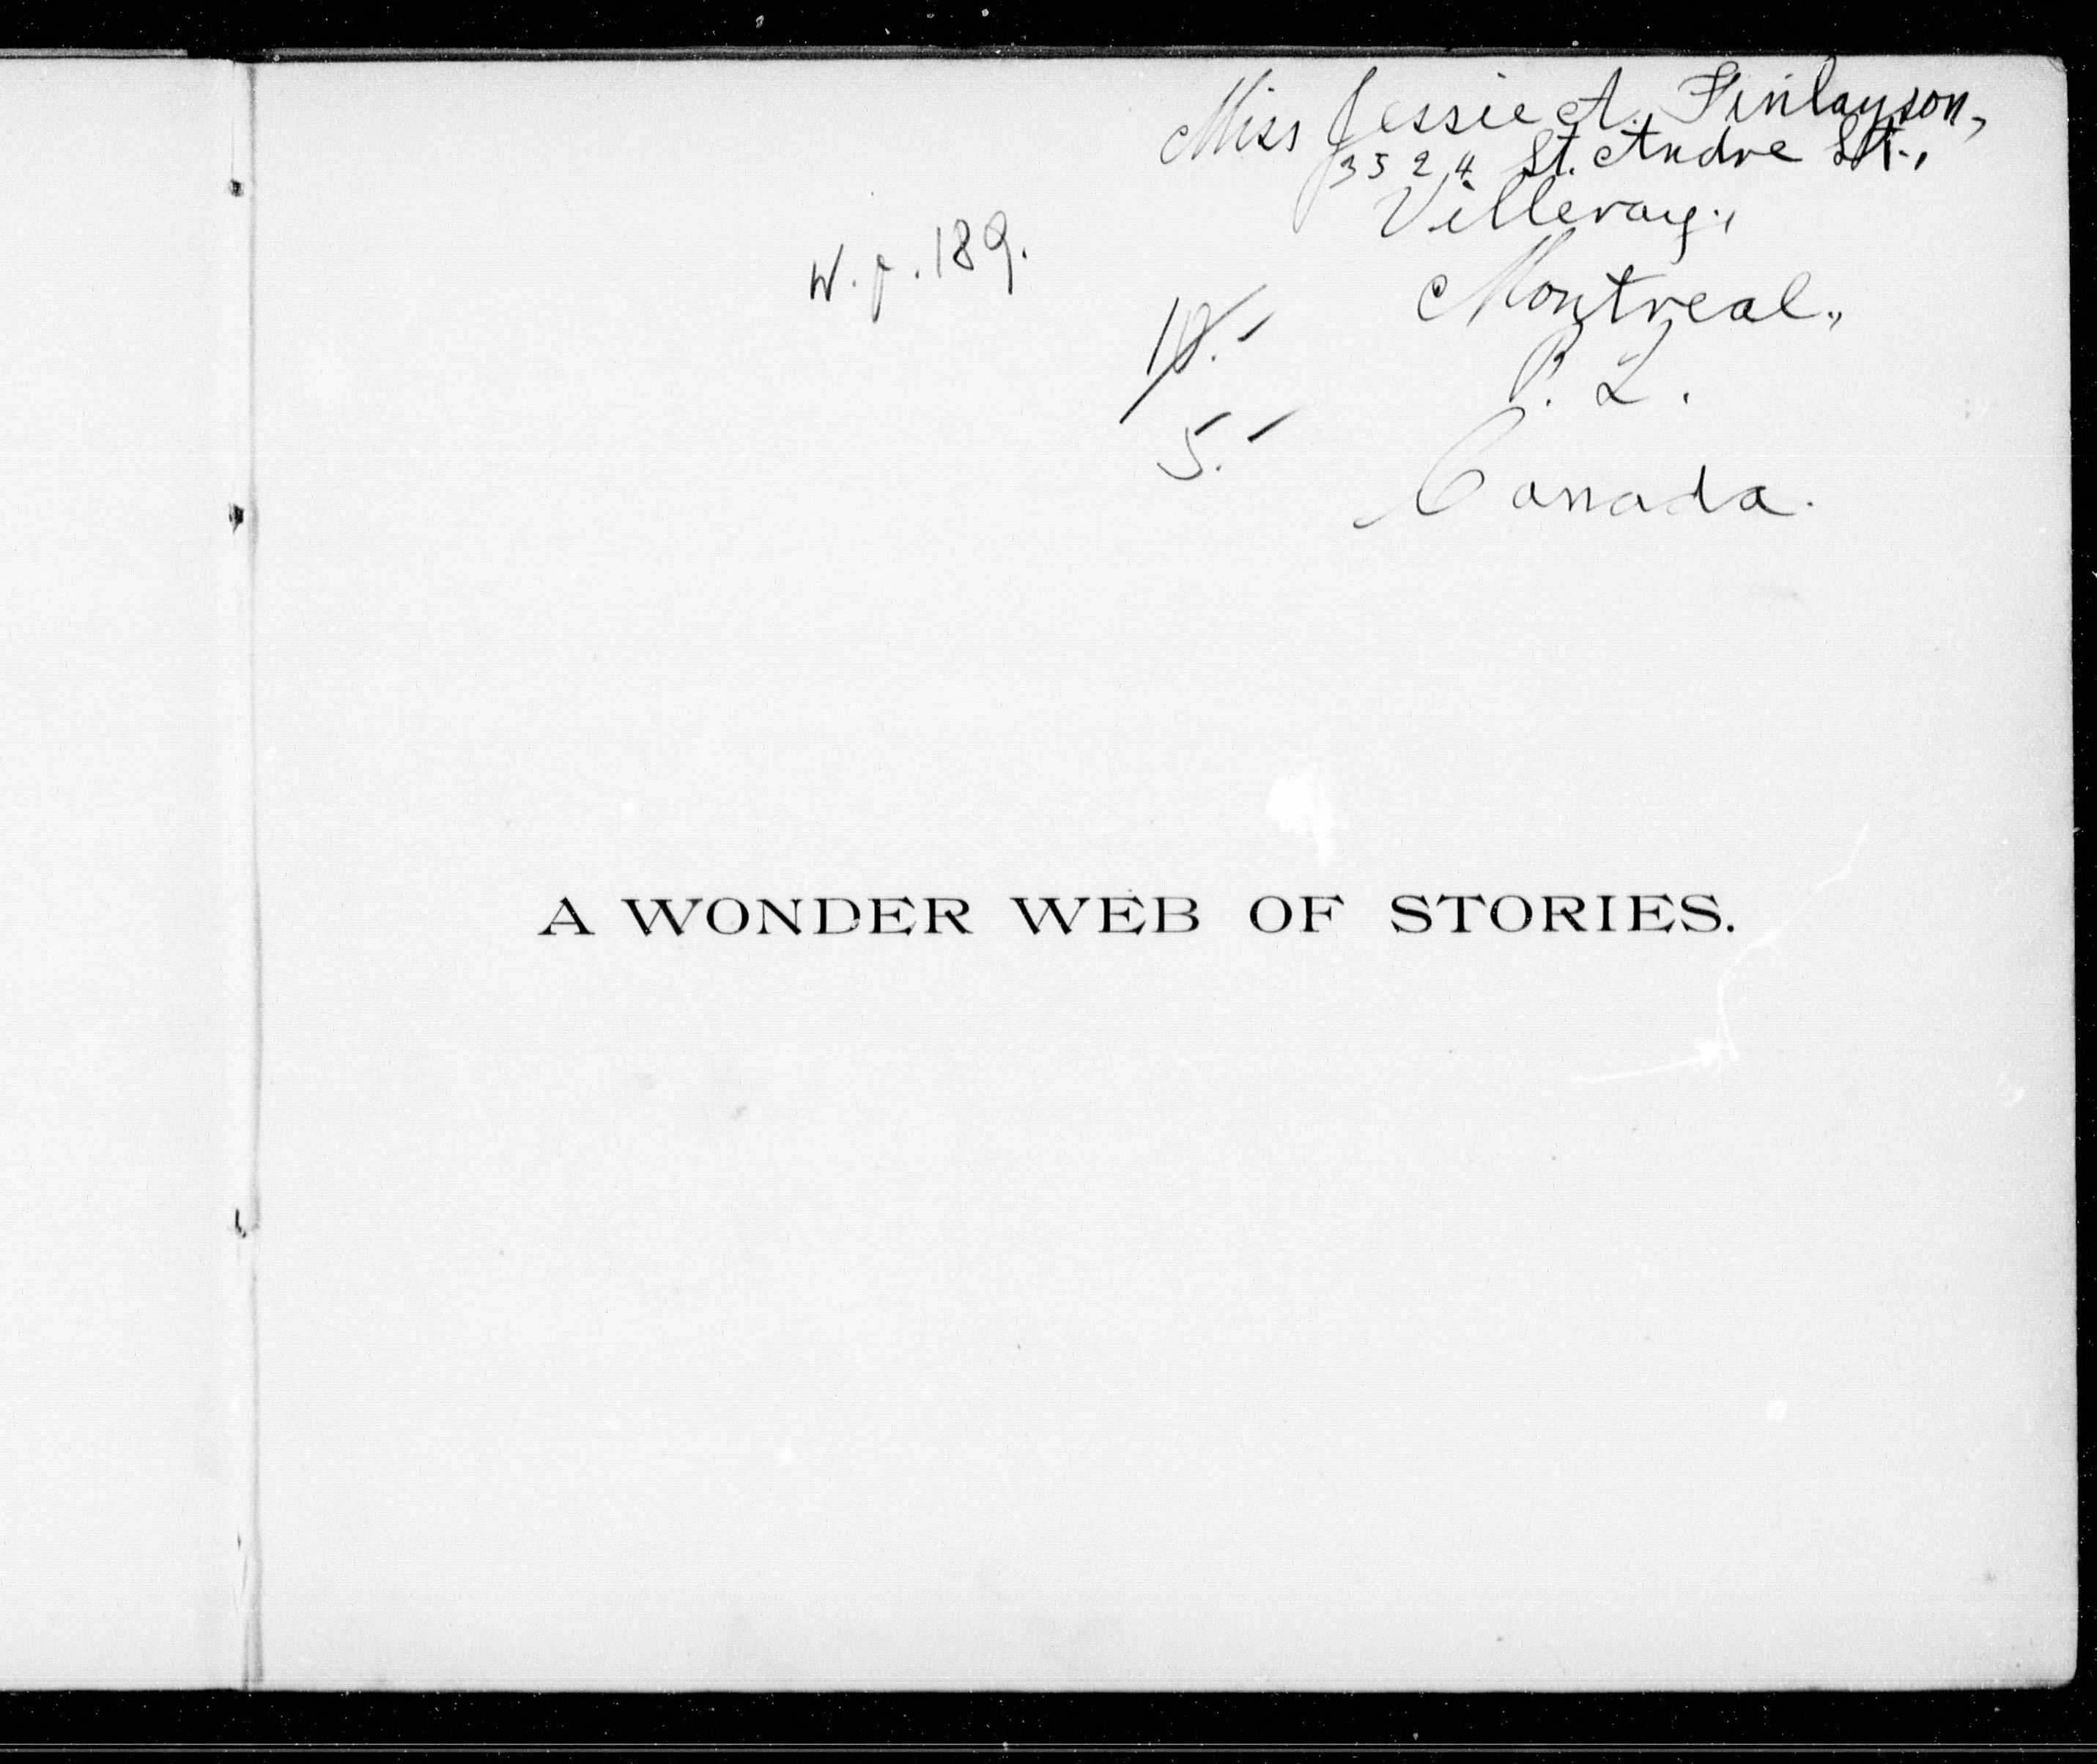 Miss Jessie A. Finlayson,
3524 St. Andre St.,
Villeray.,
W. p. 189.
Montreal.,
10.-
P. Q.
5.-
Canada.
A WONDER WEB OF STORIES.